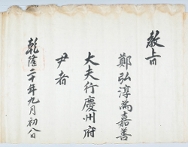 教旨
鄭弘淳爲嘉善
大夫行慶州府
尹者
乾隆二十年九月初八日